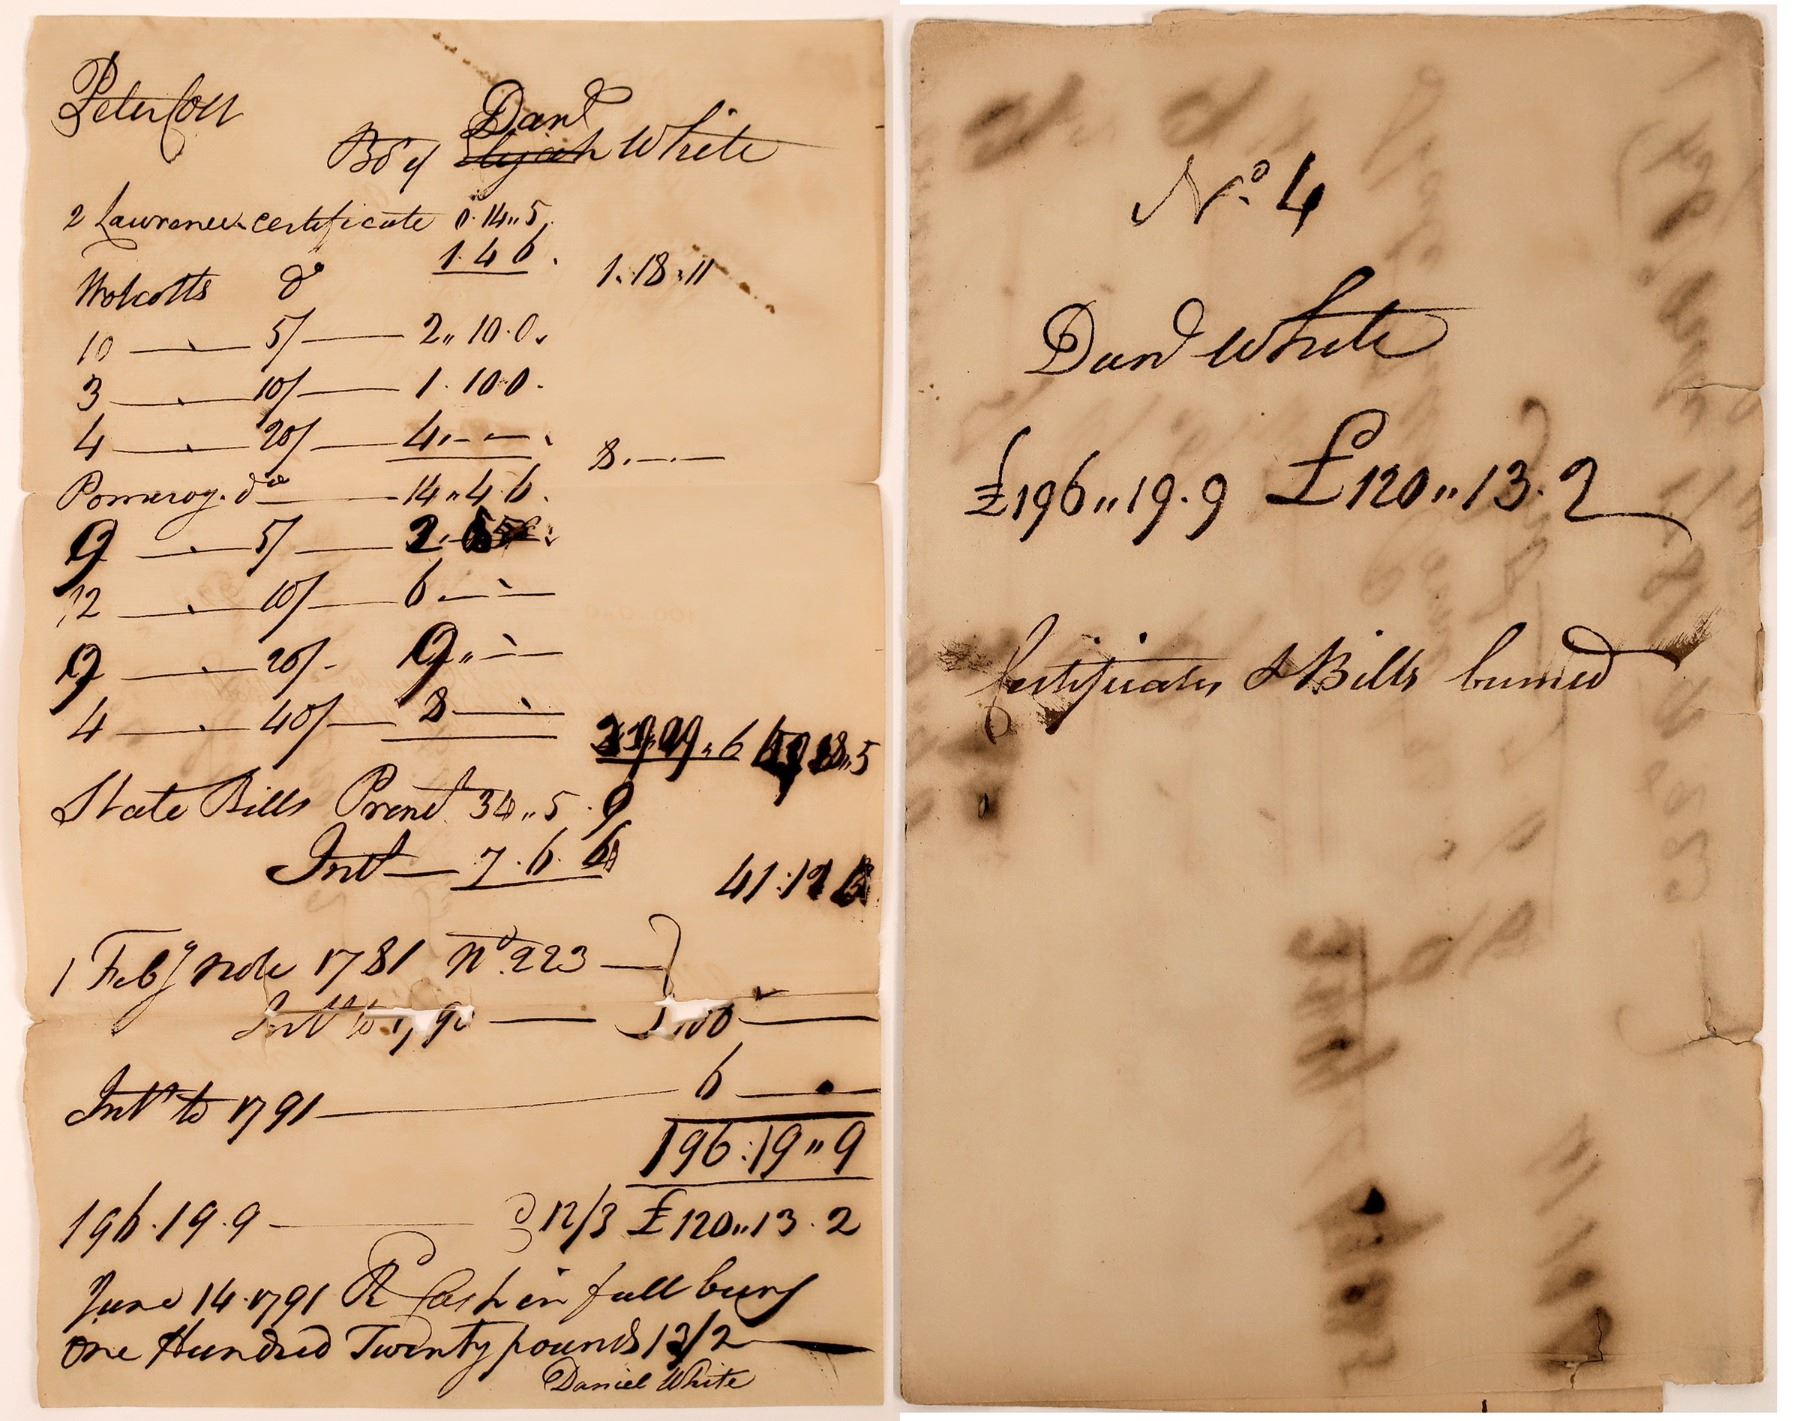 Peter Colt
Danl
Bot of Elijah White
2 Lawrences certificate 0.14,,5.
1.4 6. 1.18.11
Wolcotts do
10 — 5/ — 2,, 10.0.
3 — 10/ — 1 10.0.
4 — 20/ — 4.-- 8.--
Pomeroy. do — 14,,4 6.
9 — 5/ — 2.
12 — 10/ — 6.--
9 — 20/- 9,,--
4 — 40/ — 8 —
,, 6 ,,5
State Bills Prinl 34,,5.9
Intt — 7.6.6
41.12
1 Feby note 1781 No. 223 —
Intt to 1790 — 100 —
Intt to 1791 — 6 —
196.19,,9
196.19.9 — @ 12/3 £120,,13.2
June 14. 1791 Rd Cash in full being
One Hundred Twenty pounds 13/2 —
Daniel White
No. 4
Danl White
£196,,19.9 £120,,13.2
Certificates & Bills burned